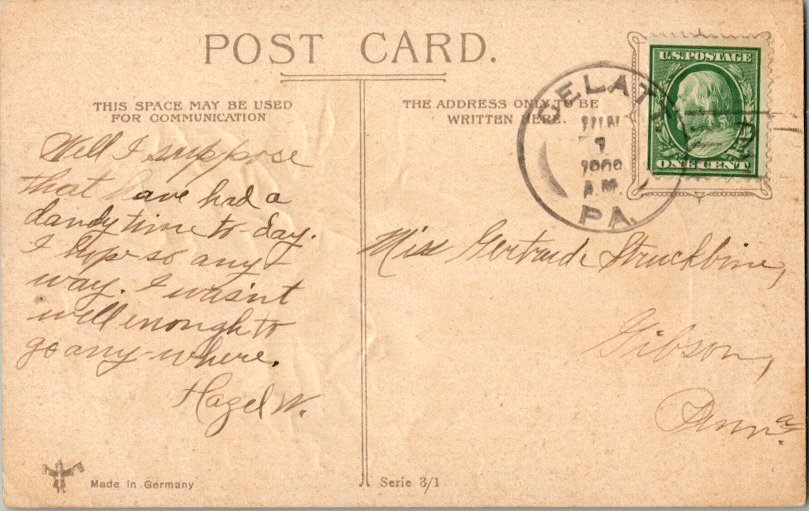 POST CARD.
THIS SPACE MAY BE USED
FOR COMMUNICATION
THE ADDRESS ONLY TO BE
WRITTEN HERE.
U.S. POSTAGE
ONE CENT
GELATT
JUN
7
1909
A.M.
PA.
Well I suppose
that have had a
dandy time to-day.
I hope so any-
way. I wasn't
well enough to
go any-where.
Hazel W.
Miss Gertrude Struckbine,
Gibson,
Penn'a.
Made in Germany
Serie 3/1